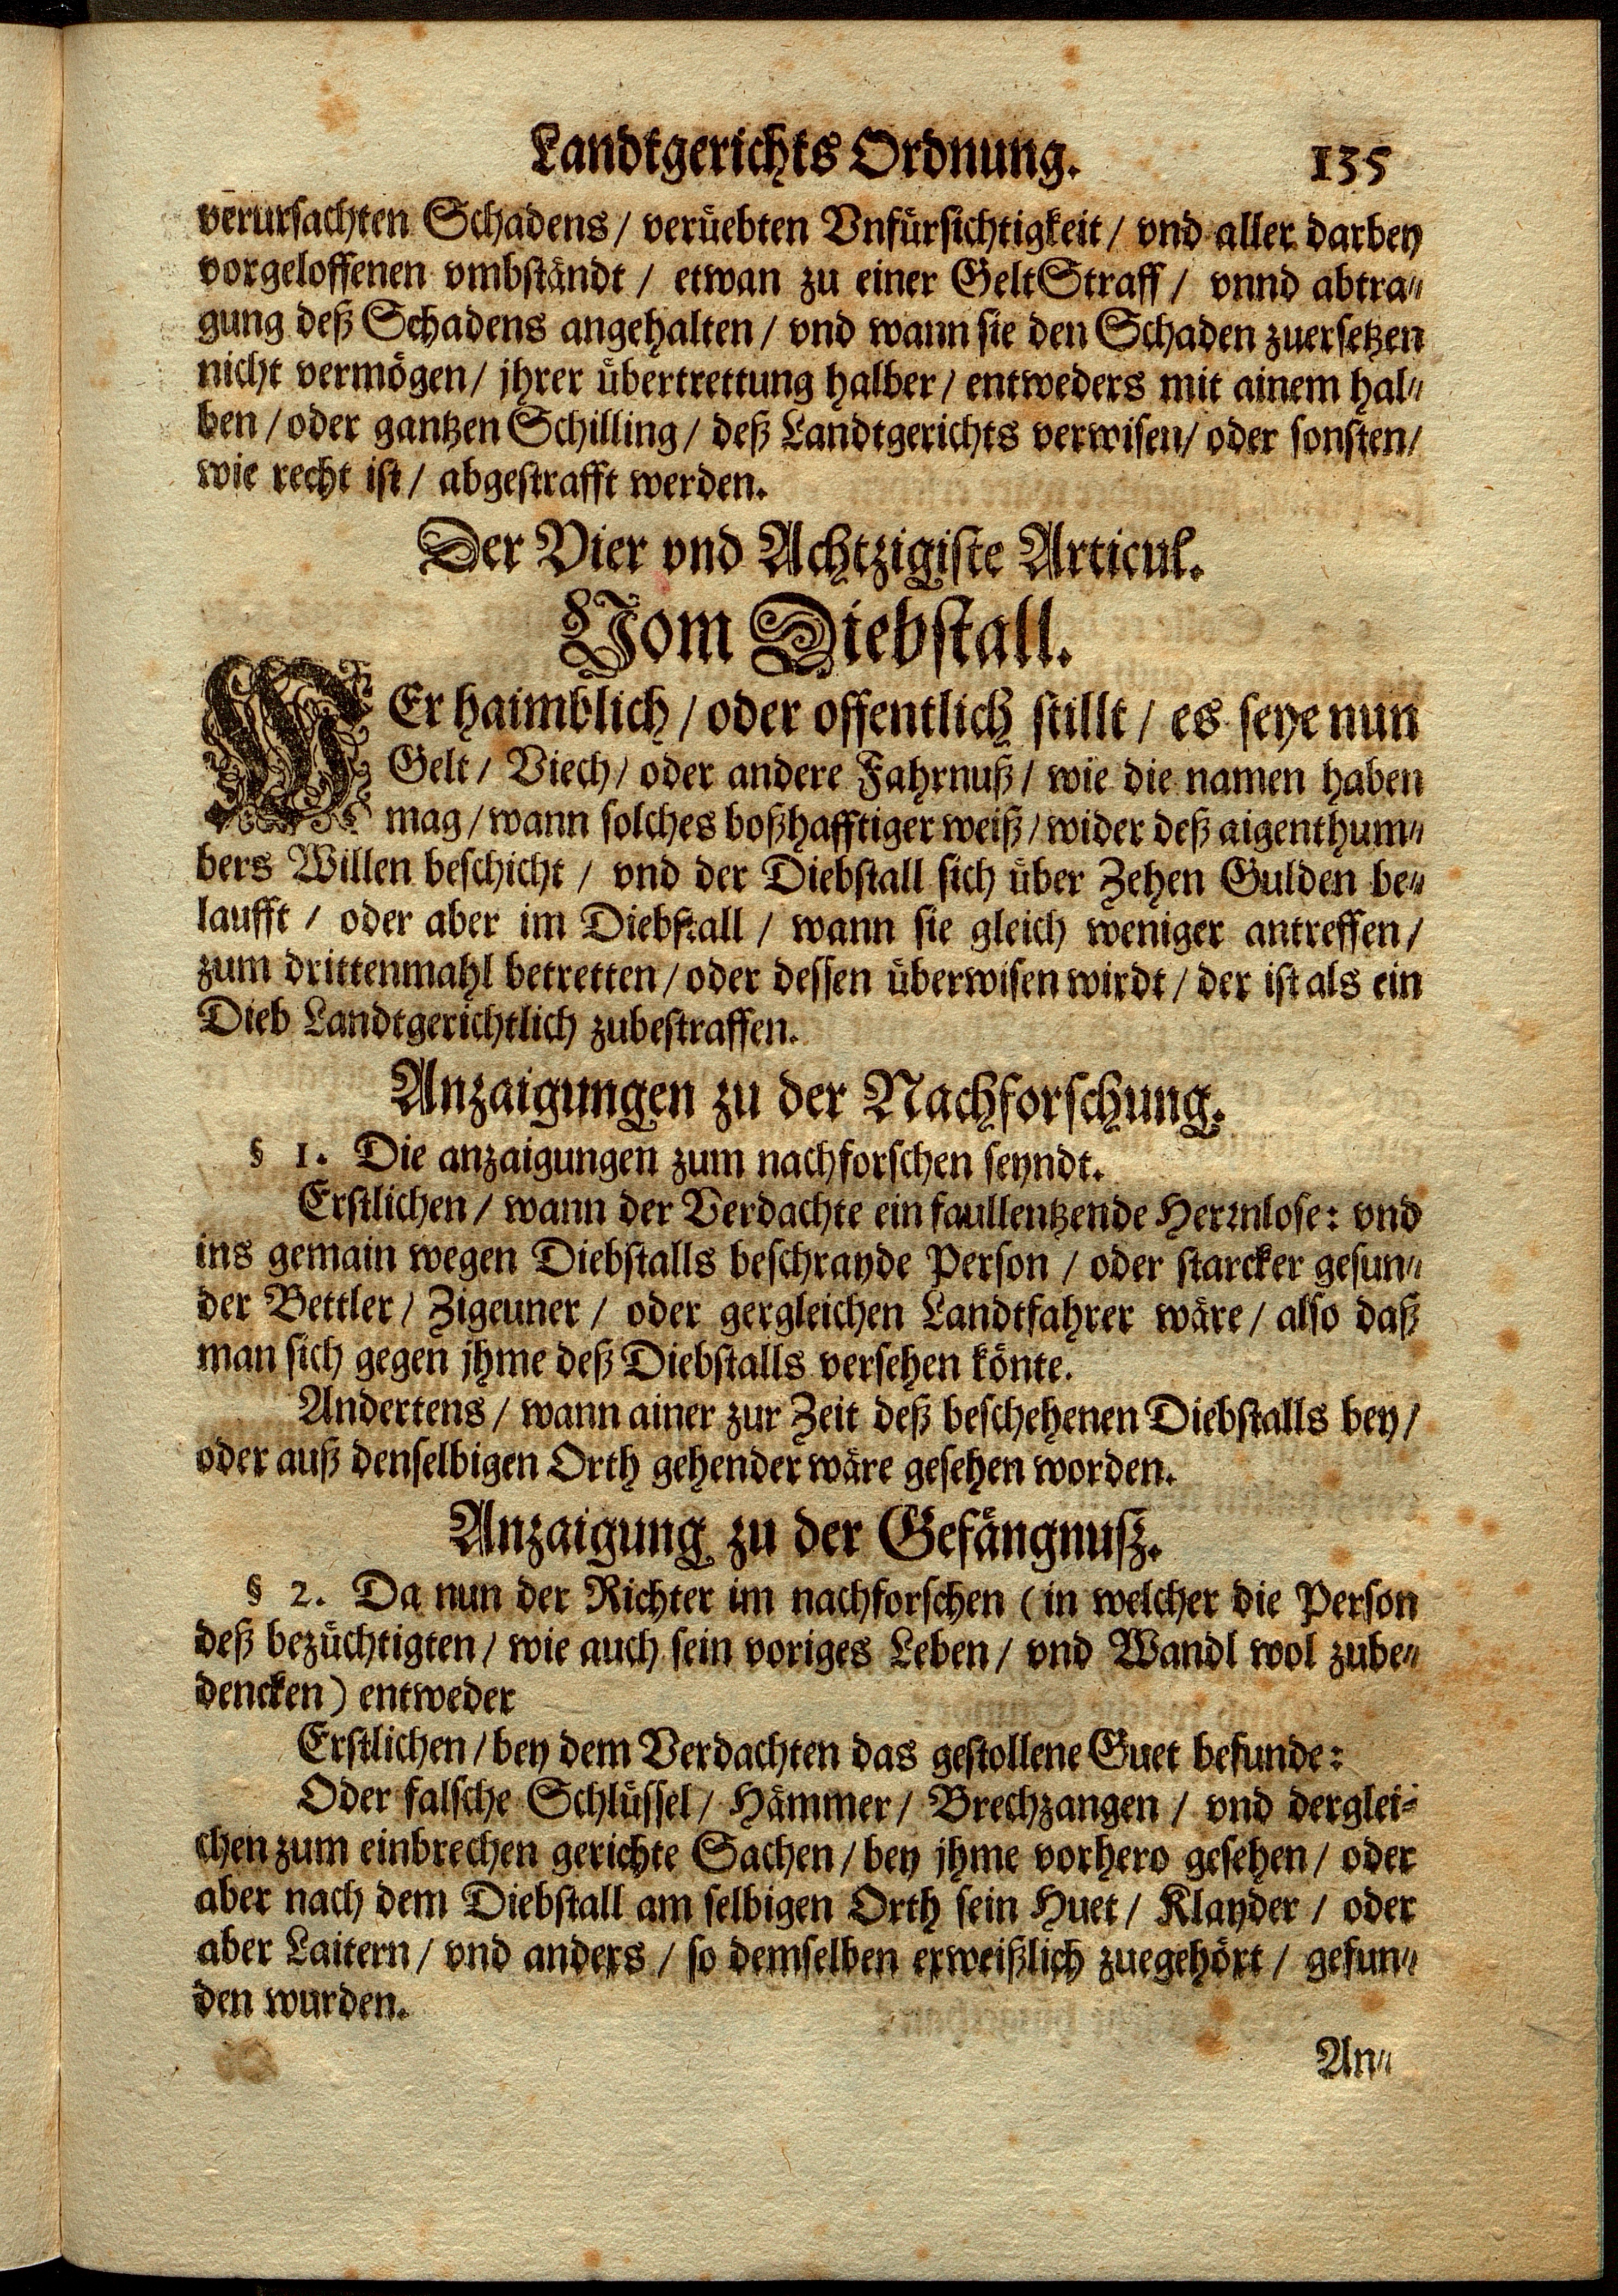 Landtgerichts Ordnung. 135
verursachten Schadens / verüebten Vnfürsichtigkeit / vnd aller darbey
vorgeloffenen vmbständt / etwan zu einer Gelt Straff / vnnd abtra⸗
gung deß Schadens angehalten / vnd wann sie den Schaden zuersetzen
nicht vermögen / jhrer übertrettung halber / entweders mit ainem hal⸗
ben / oder gantzen Schilling / deß Landtgerichts verwisen / oder sonsten /
wie recht ist / abgestrafft werden.
Der Vier vnd Achtzigiste Articul.
Vom Diebstall.
WEr haimblich / oder offentlich stillt / es seye nun
Gelt / Viech / oder andere Fahrnuß / wie die namen haben
mag / wann solches boßhafftiger weiß / wider deß aigenthum⸗
bers Willen beschicht / vnd der Diebstall sich über Zehen Gulden be⸗
laufft / oder aber im Diebstall / wann sie gleich weniger antreffen /
zum drittenmahl betretten / oder dessen überwisen wirdt / der ist als ein
Dieb Landtgerichtlich zubestraffen.
Anzaigungen zu der Nachforschung.
§ 1. Die anzaigungen zum nachforschen seyndt.
Erstlichen / wann der Verdachte ein faullentzende Herrnlose: vnd
ins gemain wegen Diebstalls beschrayde Person / oder starcker gesun⸗
der Bettler / Zigeuner / oder gergleichen Landtfahrer wäre / also daß
man sich gegen jhme deß Diebstalls versehen könte.
Andertens / wann ainer zur Zeit deß beschehenen Diebstalls bey /
oder auß denselbigen Orth gehender wäre gesehen worden.
Anzaigung zu der Gefängnusz.
§ 2. Da nun der Richter im nachforschen (in welcher die Person
deß bezüchtigten / wie auch sein voriges Leben / vnd Wandl wol zube⸗
dencken) entweder
Erstlichen / bey dem Verdachten das gestollene Guet befunde:
Oder falsche Schlüssel / Hämmer / Brechzangen / vnd derglei⸗
chen zum einbrechen gerichte Sachen / bey jhme vorhero gesehen / oder
aber nach dem Diebstall am selbigen Orth sein Huet / Klayder / oder
aber Laitern / vnd anders / so demselben erweißlich zuegehört / gefun⸗
den wurden.
An⸗